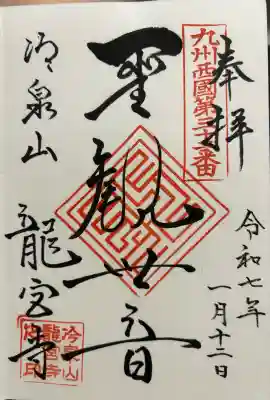 奉拝
九州西國第三十二番
令和七年
一月十二日
聖観世音
冷泉山
龍宮寺
冷泉山
龍宮寺